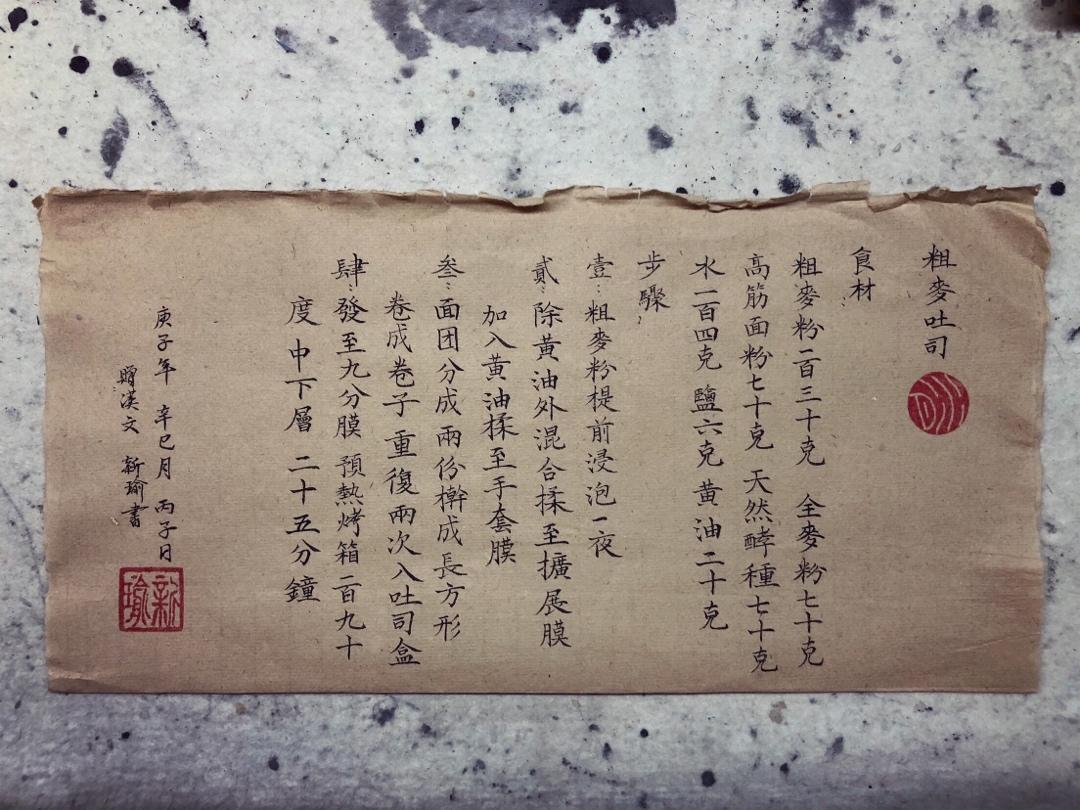 粗麥吐司
食材：
粗麥粉一百三十克 全麥粉七十克
高筋面粉七十克 天然酵種七十克
水一百四克 鹽六克 黃油二十克
步驟：
壹：粗麥粉提前浸泡一夜
貳：除黃油外混合揉至擴展膜
加入黃油揉至手套膜
叁：面团分成兩份擀成長方形
卷成卷子 重復兩次 入吐司盒
肆：發至九分膜 預熱烤箱一百九十
度 中下層 二十五分鐘
庚子年 辛巳月 丙子日
贈漢文 新瑜書
新瑜